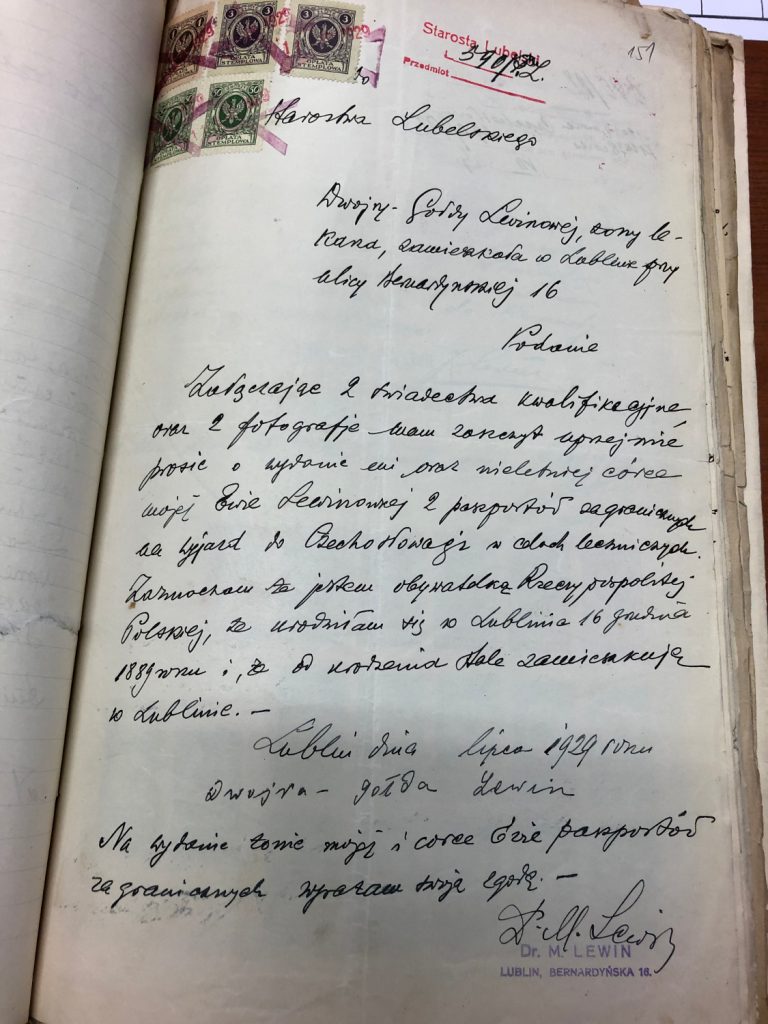 151
Starosta Lubelski
L. 390/
Przedmiot
1 3 3
OPŁATA STEMPLOWA
50 50
OPŁATA STEMPLOWA
1929
do
Starostwa Lubelskiego
Dwojry-Gołdy Lewinowej, żony le-
karza, zamieszkała w Lublinie przy
ulicy Bernardyńskiej 16
Podanie
Załączając 2 świadectwa kwalifikacyjne
oraz 2 fotografje mam zaszczyt uprzejmie
prosić o wydanie mi oraz nieletniej córce
mojej Ewie Lewinównej 2 paszportów zagranicznych
na wyjazd do Czechosłowacji w celach leczniczych.
Zaznaczam że jestem obywatelką Rzeczypospolitej
Polskiej, że urodziłam się w Lublinie 16 grudnia
1889 roku i, że od urodzenia stale zamieszkuję
w Lublinie. –
Lublin dnia lipca 1929 roku
Dwojra – Gołda Lewin
Na wydanie żonie mojej i córce Ewie paszportów
zagranicznych wyrażam swoją zgodę. –
D. M. Lewin
Dr. M. LEWIN
LUBLIN, BERNARDYŃSKA 16.